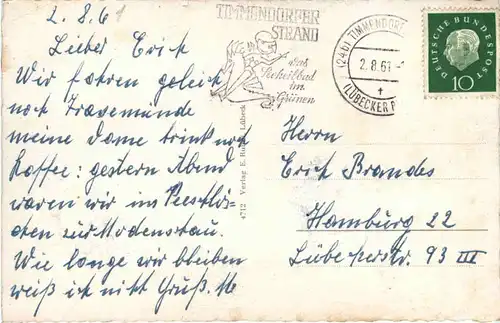 2.8.61
Lieber Erich
Wir fahren geleich
noch Travemünde
meine Dame trink noch
Kaffee: gestern Abend
waren wir im
chen zur Modenschau.
Wie lange wir bleiben
weiß ich nikt Gruß.
TIMMENDORFER
STRAND
das
Seeheilbad
im
Grünen
(24b) TIMMENDORF
2.8.61
(LÜBECKER
DEUTSCHE BUNDESPOST
10
4712 Verlag E. Lübeck
Herrn
Erich Brandes
Hamburg 22
Lübeckerstr. 93 III